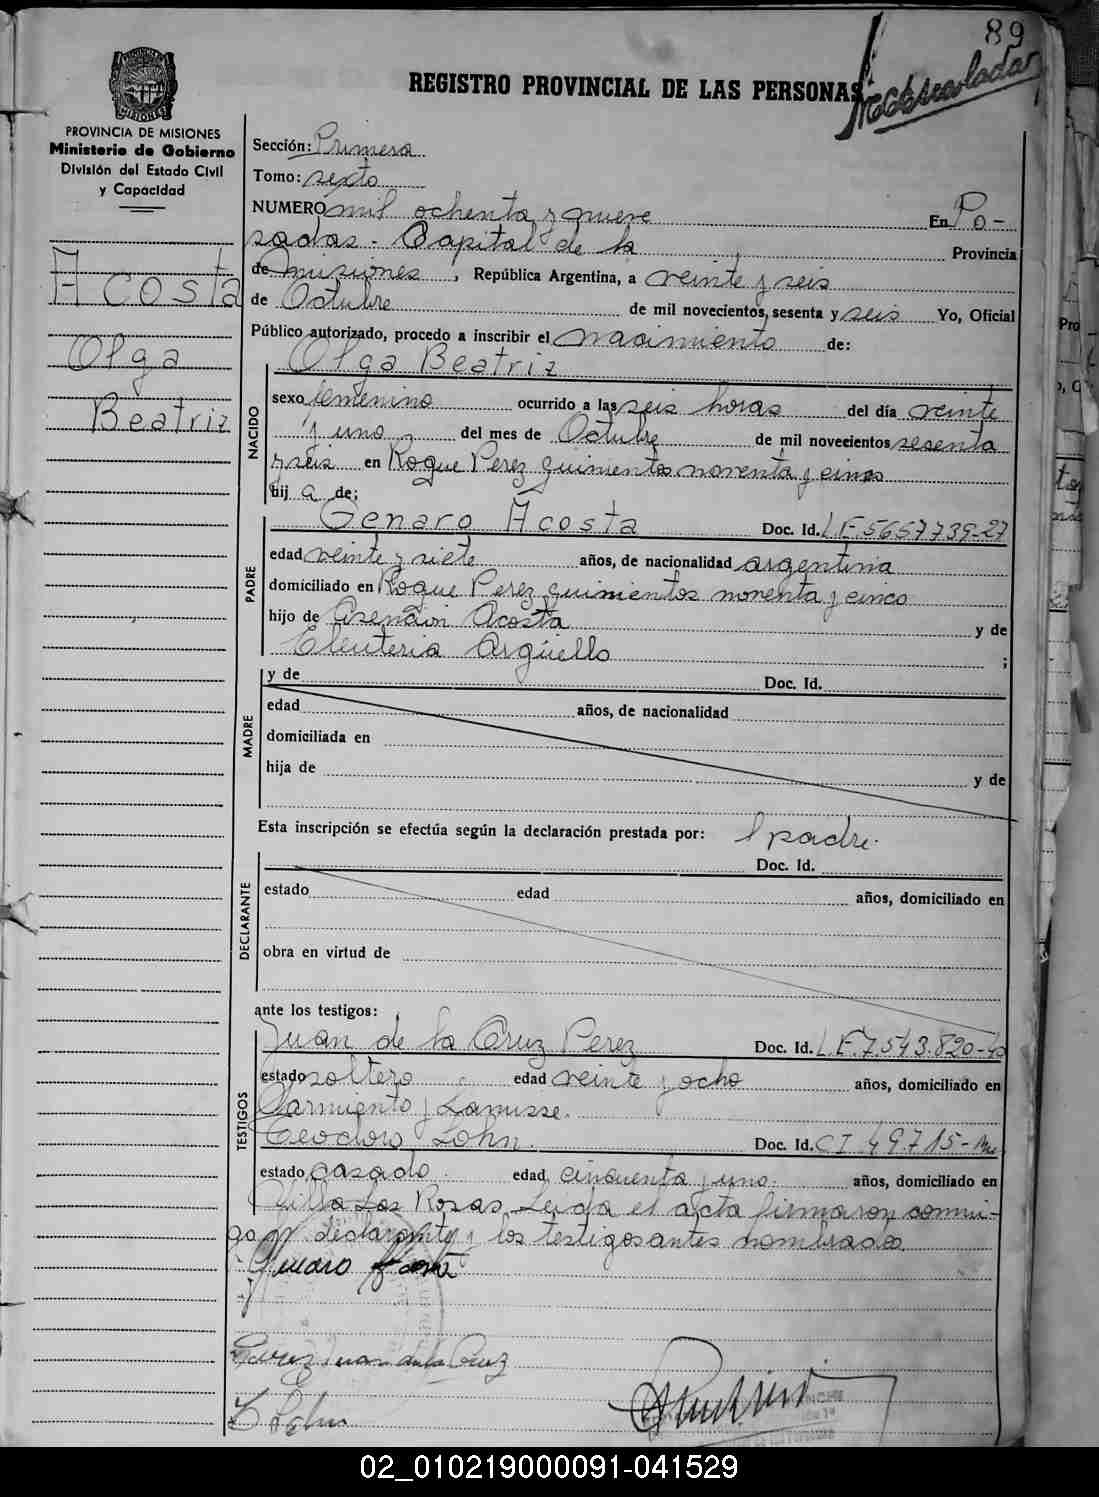 89
REGISTRO PROVINCIAL DE LAS PERSONAS
PROVINCIA DE MISIONES
Ministerio de Gobierno
División del Estado Civil
y Capacidad
Acosta
Olga
Beatriz
Sección: Primera
Tomo: sexto
NUMERO mil ochenta y nueve En Po-
sadas - Capital de la Provincia
de Misiones, República Argentina, a veinte y seis
de Octubre de mil novecientos, sesenta y seis Yo, Oficial
Público autorizado, procedo a inscribir el nacimiento de:
Olga Beatriz
NACIDO
sexo femenino ocurrido a las seis horas del día veinte
y uno del mes de Octubre de mil novecientos sesenta
y seis en Roque Perez quinientos noventa y cinco
hij a de:
PADRE
Genaro Acosta Doc. Id. L.E. 5657739-27
edad veinte y siete años, de nacionalidad argentina
domiciliado en Roque Perez quinientos noventa y cinco
hijo de Asención Acosta y de
Eleuteria Argüello ;
MADRE
y de Doc. Id.
edad años, de nacionalidad
domiciliada en
hija de y de
Esta inscripción se efectúa según la declaración prestada por: l padre.
DECLARANTE
Doc. Id.
estado edad años, domiciliado en
obra en virtud de
ante los testigos:
TESTIGOS
Juan de la Cruz Perez Doc. Id. L.E. 7.543.820-
estado soltero edad veinte y ocho años, domiciliado en
Sarmiento y Lanusse.
Teodoro Lohn. Doc. Id. C I 49.715-
estado casado edad cincuenta y uno. años, domiciliado en
Villa Las Rosas. Leida el acta firmaron conmi-
go declarante y los testigos antes nombrados
Genaro Acosta
Perez Juan de la Cruz
02_010219000091-041529